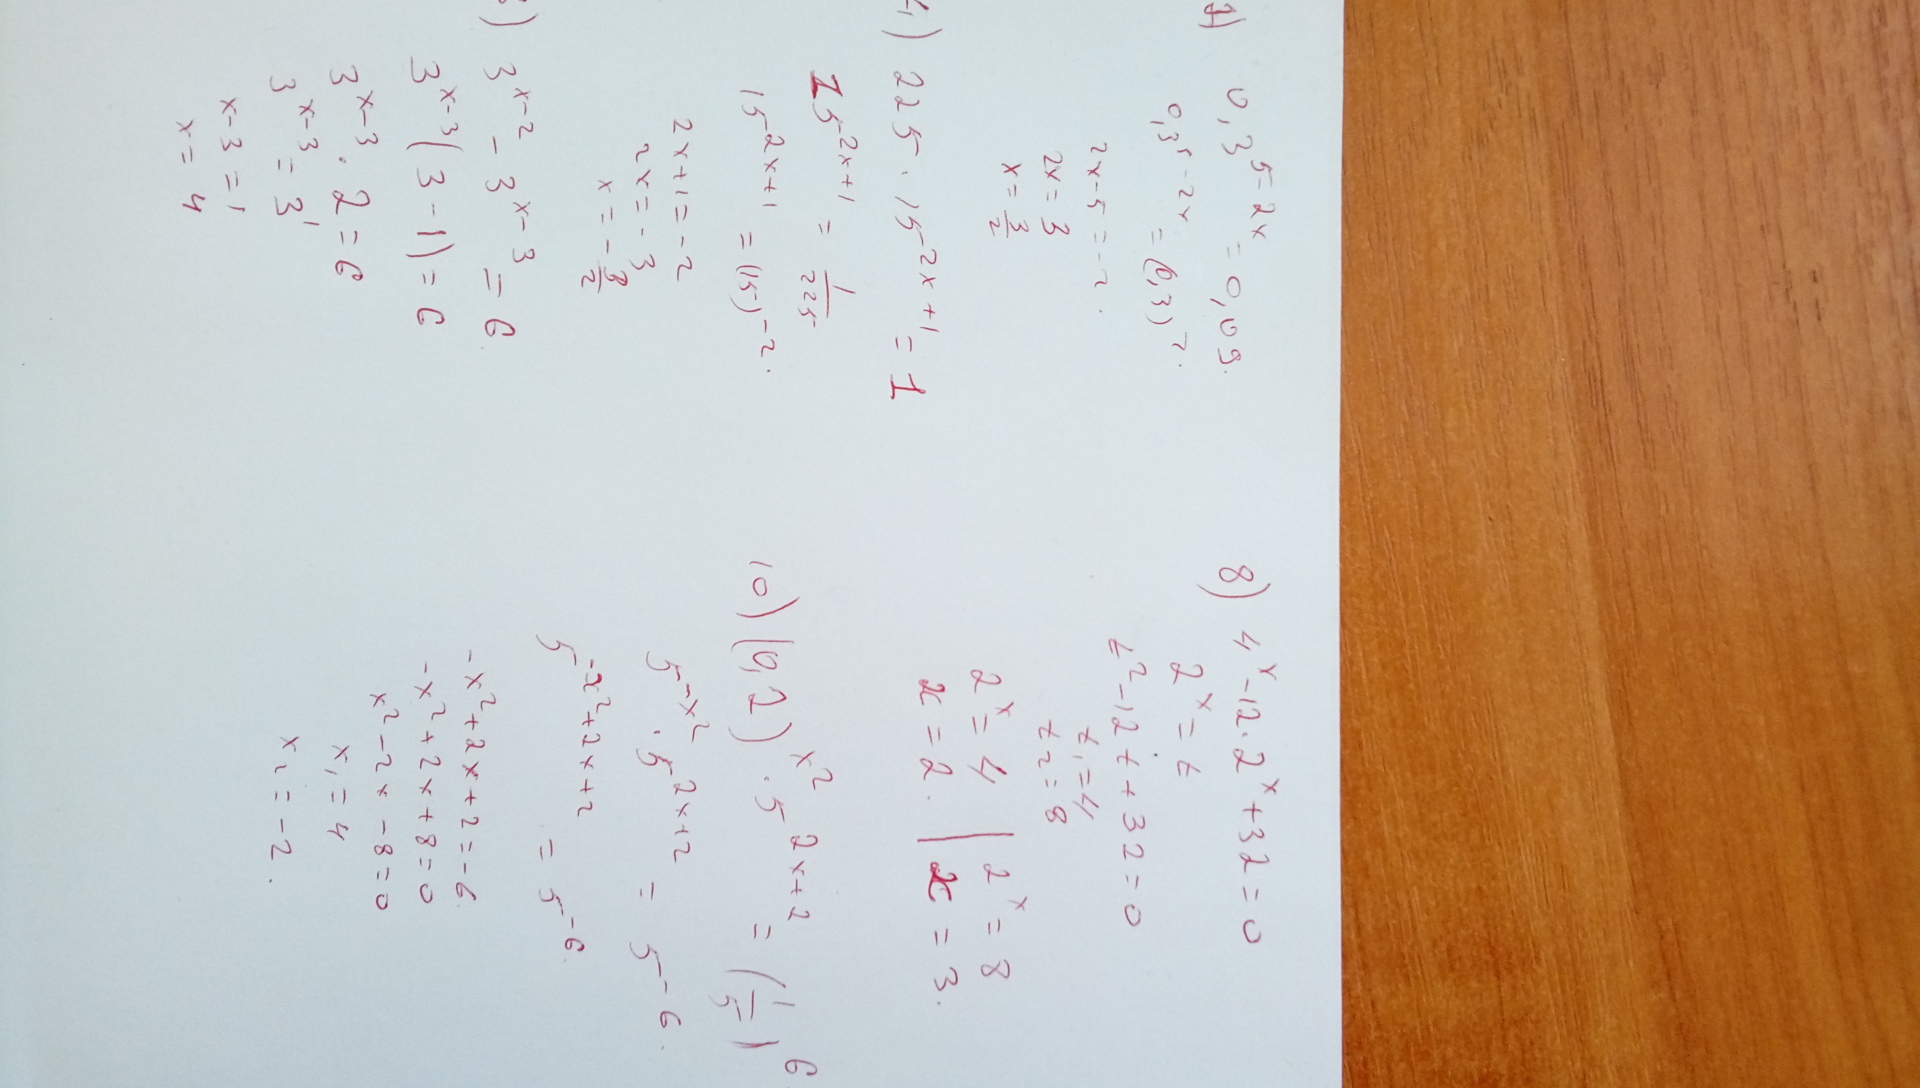 1) 0,3^{5-2x} = 0,09.
0,3^{5-2x} = (0,3)^2.
2x-5=-2.
2x=3
x=\frac{3}{2}
4) 225·15^{2x+1}=1
15^{2x+1}=\frac{1}{225}
15^{2x+1}=(15)^{-2}.
2x+1=-2
2x=-3
x=-\frac{3}{2}
) 3^{x-2}-3^{x-3}=6.
3^{x-3}(3-1)=6
3^{x-3}·2=6
3^{x-3}=3^1
x-3=1
x=4
8) 4^x-12·2^x+32=0
2^x=t
t^2-12t+32=0
t_1=4
t_2=8
2^x=4 | 2^x=8
x=2. | x=3.
10) (0,2)^{x^2}·5^{2x+2}=(\frac{1}{5})^6
5^{-x^2}·5^{2x+2}=5^{-6}.
5^{-x^2+2x+2}=5^{-6}.
-x^2+2x+2=-6.
-x^2+2x+8=0
x^2-2x-8=0
x_1=4
x_2=-2.